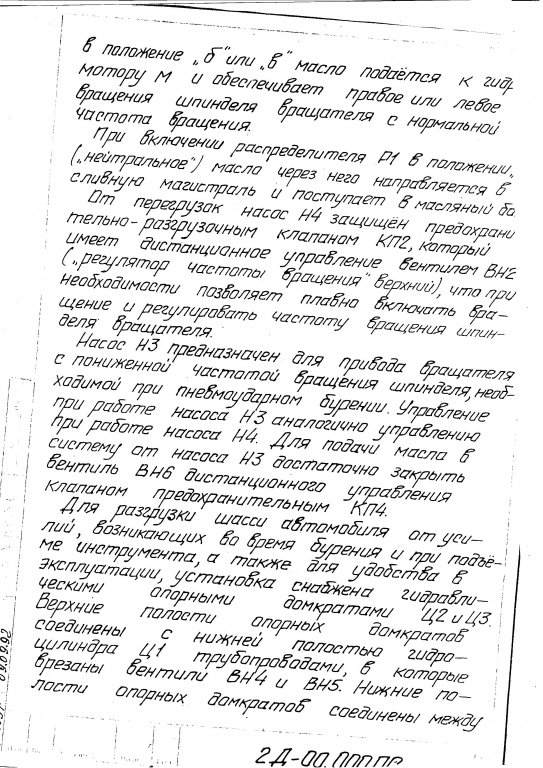 в положение „б" или „в" масло подаётся к гидр
мотору М и обеспечивает правое или левое
вращения шпинделя вращателя с нормальной
частота вращения.
При включении распределителя Р1 в положении „
(„нейтральное") масло через него направляется в
сливную магистраль и поступает в масляный ба
От перегрузак насос Н4 защищён предохрани
тельно-разгрузочным клапаном КП2, который
имеет дистанционное управление вентилем ВН2
(„регулятор частоты вращения" верхний), что при
необходимости позволяет плавно включать вра-
щение и регулировать частоту вращения шпин-
деля вращателя.
Насос Н3 предназначен для привода вращателя
с пониженной частатой вращения шпинделя, необ-
ходимой при пневмоударном бурении. Управление
при работе насоса Н3 аналогично управлению
при работе насоса Н4. Для подачи масла в
систему от насоса Н3 достаточно закрыть
вентиль ВН6 дистанционного управления
клапаном предохранительным КП4.
Для разгрузки шасси автомобиля от уси-
лий, возникающих во время бурения и при подъё-
ме инструмента, а также для удобства в
эксплуатации, установка снабжена гидравли-
ческими опорными домкратами Ц2 и Ц3.
Верхние полости опорных домкратов
соединены с нижней полостью гидро-
цилиндра Ц1 трубопроводами, в которые
врезаны вентили ВН4 и ВН5. Нижние по-
лости опорных домкратов соединены между
2Д-00.000